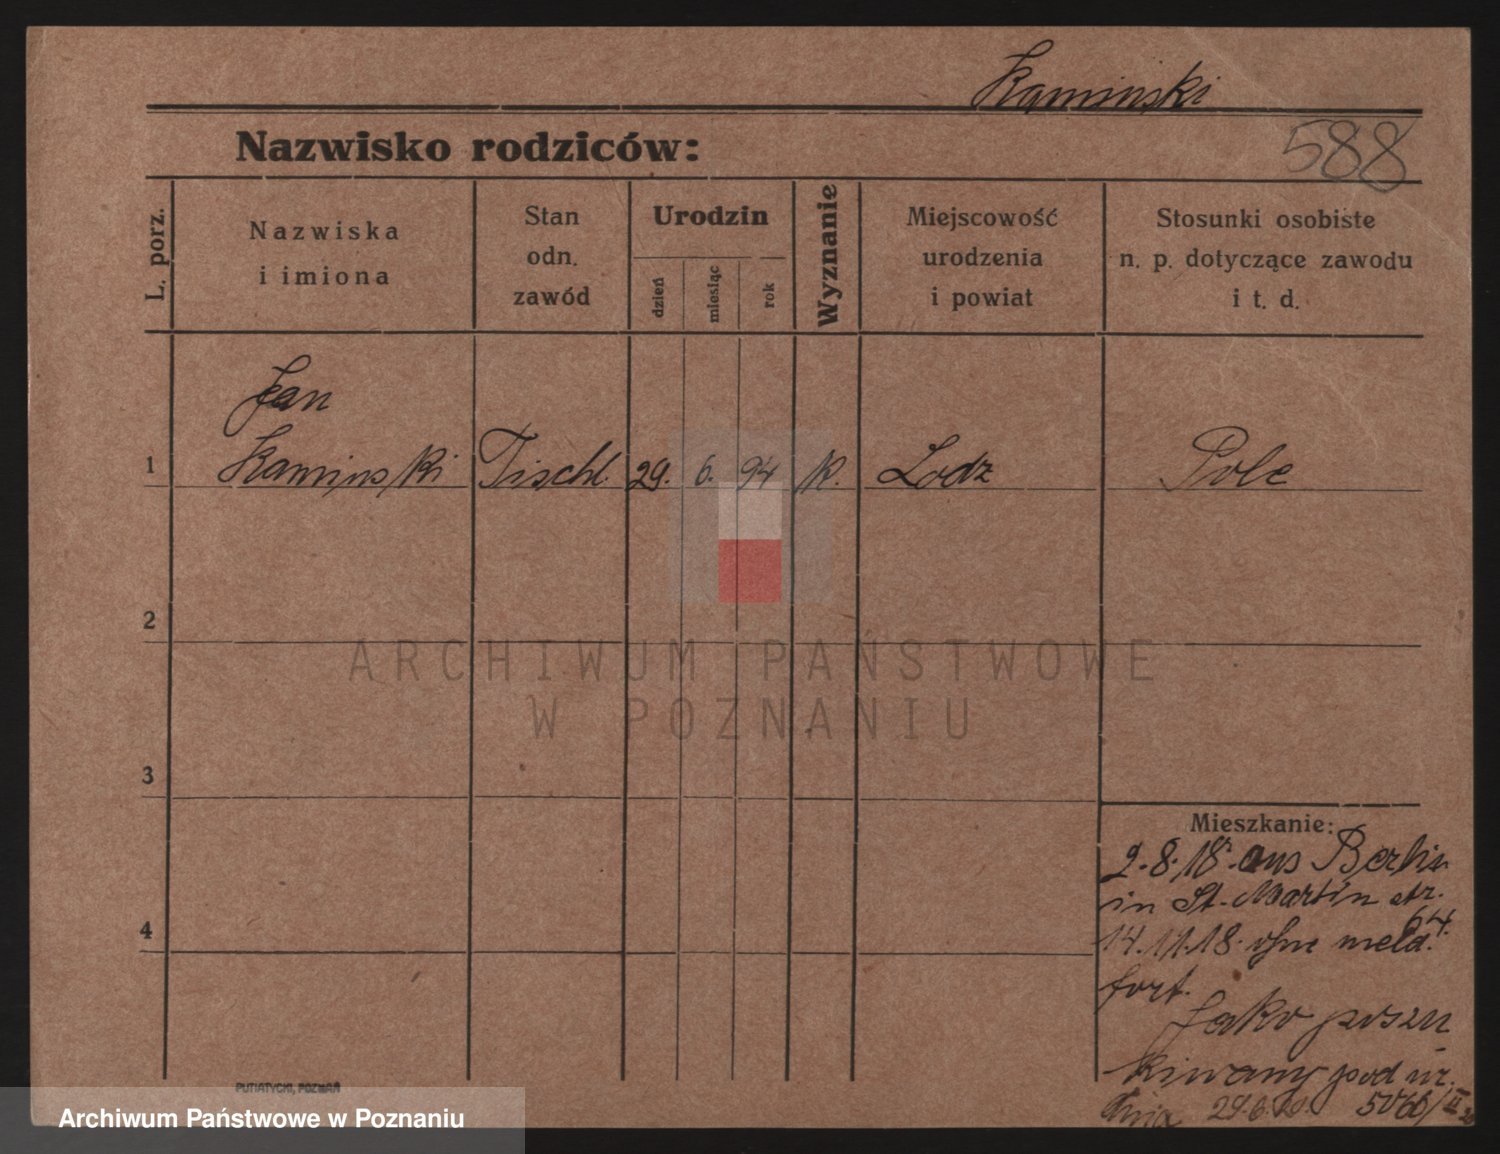 Kaminski
588
Nazwisko rodziców:
L. porz.
Nazwiska
i imiona
Stan
odn.
zawód
Urodzin
dzień
miesiąc
rok
Wyznanie
Miejscowość
urodzenia
i powiat
Stosunki osobiste
n. p. dotyczące zawodu
i t. d.
Jan
1 Kaminski Tischl. 29. 6. 94 k. Lodz Pole
2
ARCHIWUM PAŃSTWOWE
W POZNANIU
3
Mieszkanie:
2.8.18. aus Berlin
in St. Martin str.
64.
4
14.11.18. ohne meld.
fort.
Jako poszu
kiwany pod nr.
dnia 29.6.20. 5066/II
PUTIATYCKI, POZNAŃ
Archiwum Państwowe w Poznaniu